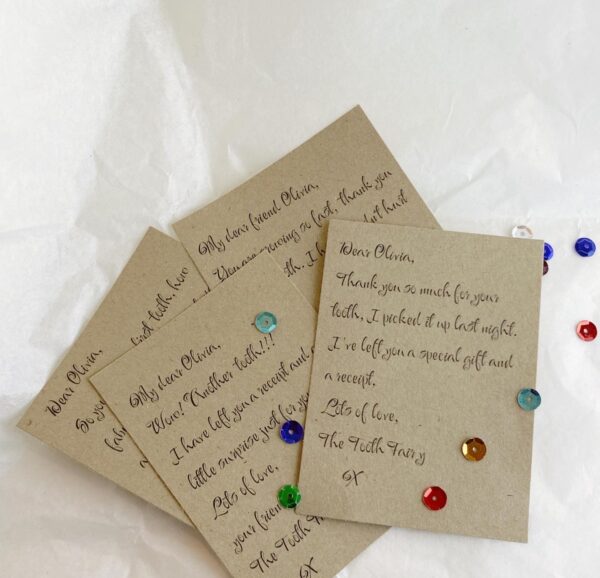 My dear friend Olivia,
You are growing so fast, thank you
Dear Olivia,
first tooth, how
So you
My dear Olivia,
Wow! Another tooth!!!
I have left you a receipt and a
little surprise just for you
Lots of love,
your friend
The Tooth
6X
Dear Olivia,
Thank you so much for your
tooth, I picked it up last night.
I've left you a special gift and
a receipt.
Lots of love,
The Tooth Fairy
6X